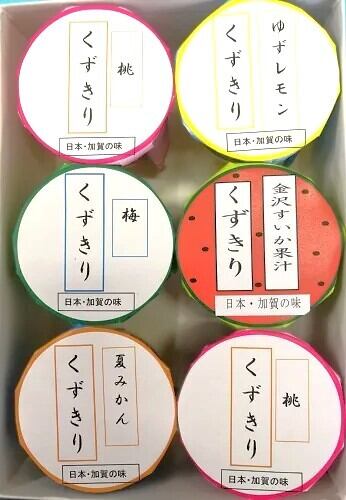 桃
くずきり
日本・加賀の味
ゆずレモン
くずきり
日本・加賀の味
梅
くずきり
日本・加賀の味
金沢すいか果汁
くずきり
日本・加賀の味
夏みかん
くずきり
日本・加賀の味
桃
くずきり
日本・加賀の味